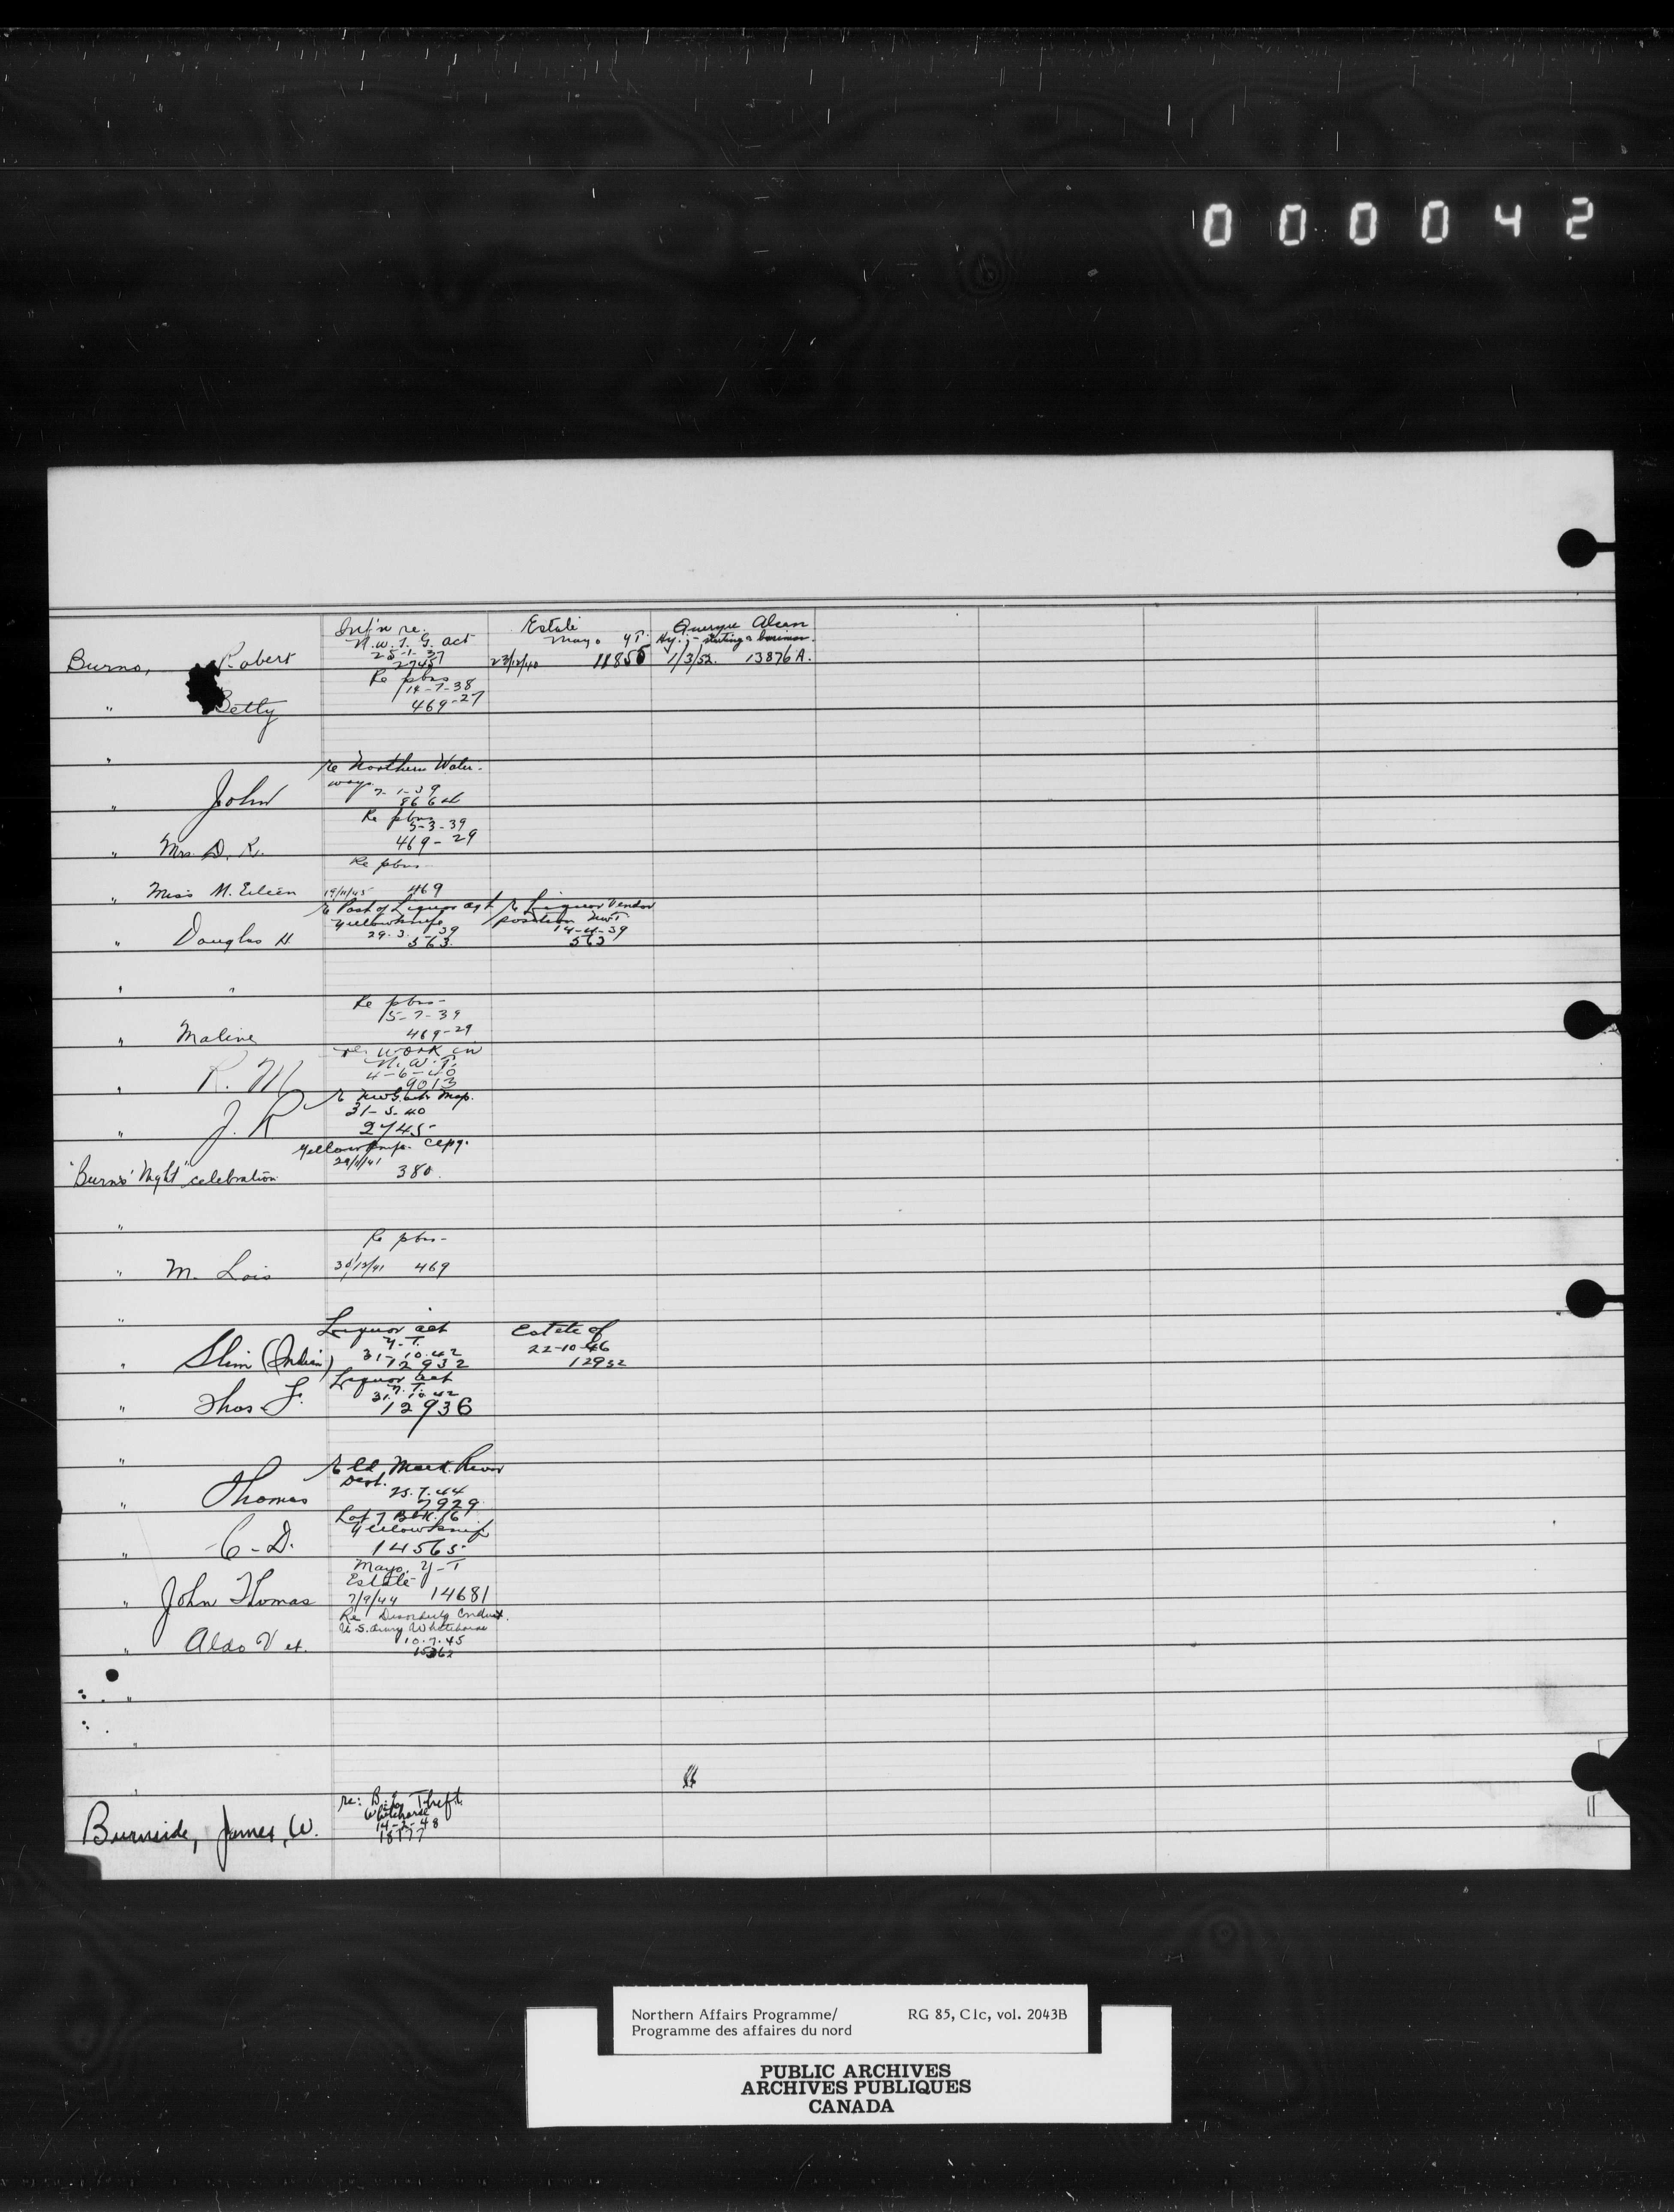 000042
Burns, Robert
Inf'n re.
N.W.T. G. Act
25-1-37
2745
Estate
Mayo YT.
23/12/40 11855
Alcan
Hy. - starting a business.
1/3/52. 13876A.
" Betty
Re pbns
14-7-38
469-27
"
" John
re Northern Water-
ways
" Mrs. D. K.
Re pbns
3-3-39
469-29
" Miss M. Eileen
Re pbns
19/11/45 469
" Douglas H.
re Post of Liquor agt
Yellowknife
29.3.39
563.
re Liquor Vendor
position NWT
14-4-39
563
" "
" Maline
Re pbns-
15-7-39
469-29
" R. M
re. work in
N.W.T.
4-6-40
9013
" J. R
Map.
31-5-40
2745-
"Burns' Night" celebration
Yellowknife
29/11/41
380.
"
" M. Lois
Re pbns-
30/12/41 469
"
" Slim (Indian)
Liquor act
Y.T.
31-10-42
12932
Estate of
22-10-46
12932
" Thos. F.
Liquor act
Y.T.
31.10.42
12936
"
" Thomas
Mack. River
Dist.
25.7.44
7929
" C-D.
Lot 7 Blk. 16
Yellowknife
14565-
" John Thomas
Mayo, Y-T
Estate
7/9/44 14681
" Aldo V et.
Re Disorderly Conduct.
U.S. Army Whitehorse
10.7.45
15362
"
"
"
Burnside, James, W.
re: Theft
Whitehorse
14-2-48
18177
Northern Affairs Programme/ RG 85, C1c, vol. 2043B
Programme des affaires du nord
PUBLIC ARCHIVES
ARCHIVES PUBLIQUES
CANADA